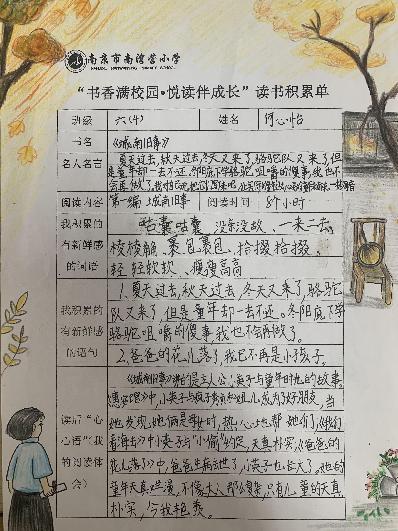 南京市南湾营小学
“书香满校园·悦读伴成长”读书积累单
班级 六(4) 姓名 何心怡
书名 《城南旧事》
名人名言 夏天过去,秋天过去,冬天又来了,骆驼队又来了,但
是童年却一去不还。冬阳底下学骆驼咀嚼的傻事,我也不
会再做了。
阅读内容 第一编 城南旧事 阅读时间 8个小时
我积累的有新鲜感的词语
咕囊咕囊 没亲没故 一来二去
棱棱 裹包裹包 拾掇拾掇
轻轻软软 瘦瘦高高
我积累的有新鲜感的语句
1.夏天过去,秋天过去,冬天又来了,骆驼
队又来了,但是童年却一去不还。冬阳底下学
骆驼咀嚼的傻事,我也不会再做了。
2.爸爸的花儿落了,我已不再是小孩子。
读后“心心语”(我的阅读体会)
《城南旧事》讲的是主人公英子与童年时光的故事
《惠安馆》中,小英子与疯子秀贞和妞儿成为了好朋友,当
她发现她俩是母女时,热心地帮她们,《我们
看海去》中小英子与“小偷”约定,天真朴实,《爸爸的
花儿落了》中,爸爸生病去世了,小英子也长大了。她的
童年天真烂漫,不像大人那么复杂,只有儿童的天真
朴实,令我艳羡。